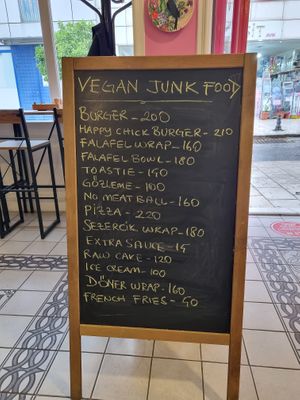 VEGAN JUNK FOOD
BURGER - 200
HAPPY CHICK BURGER - 210
FALAFEL WRAP - 160
FALAFEL BOWL - 180
TOASTIE - 150
GÖZLEME - 100
NO MEAT BALL - 160
PİZZA - 220
SEZERCİK WRAP - 180
EXTRA SAUCE - 15
RAW CAKE - 120
ICE CREAM - 100
DÖNER WRAP - 160
FRENCH FRIES - 90